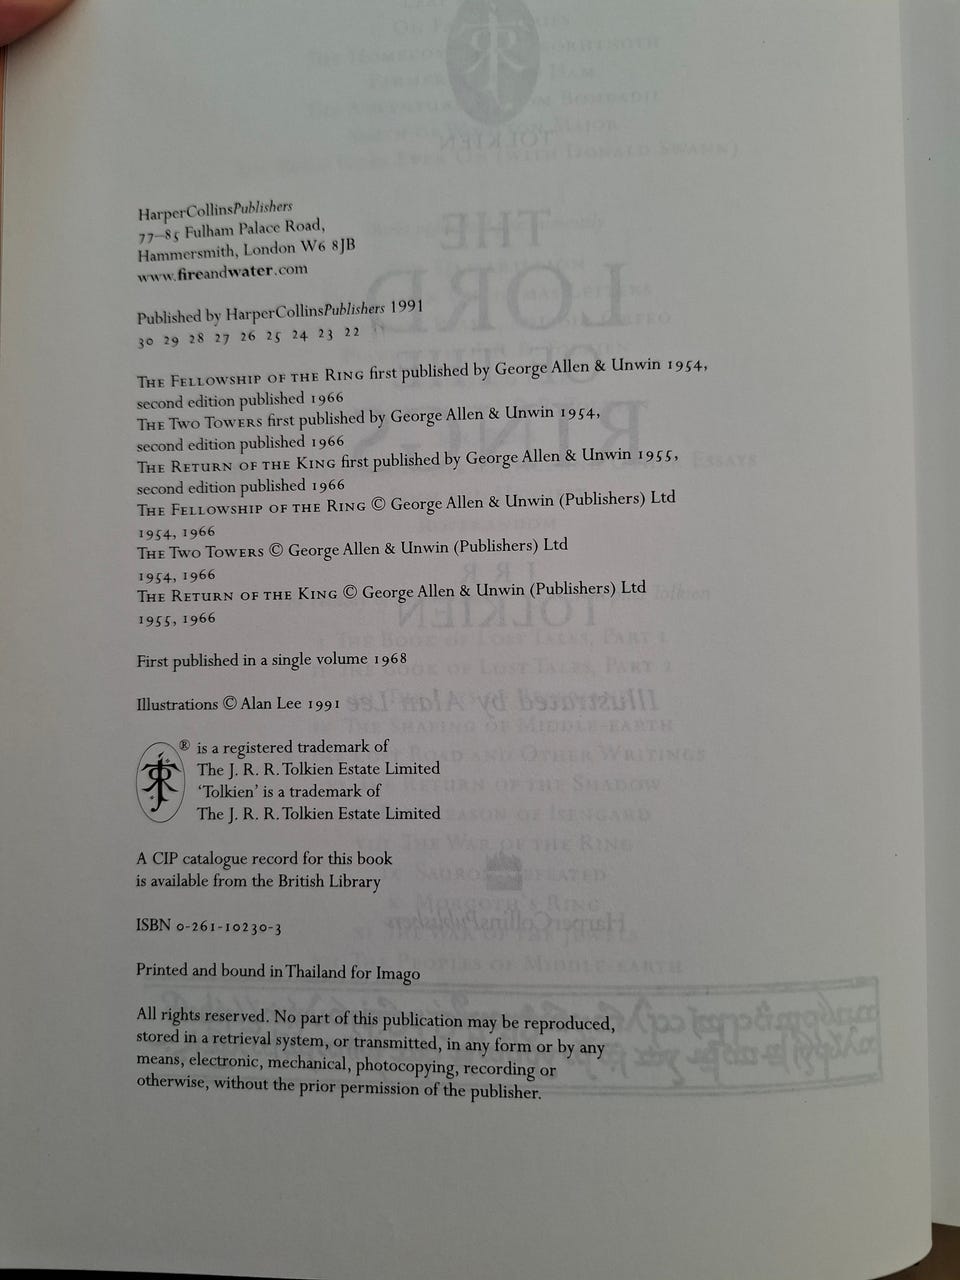 HarperCollinsPublishers
77–85 Fulham Palace Road,
Hammersmith, London W6 8JB
www.fireandwater.com
Published by HarperCollinsPublishers 1991
30 29 28 27 26 25 24 23 22
THE FELLOWSHIP OF THE RING first published by George Allen & Unwin 1954,
second edition published 1966
THE TWO TOWERS first published by George Allen & Unwin 1954,
second edition published 1966
THE RETURN OF THE KING first published by George Allen & Unwin 1955,
second edition published 1966
THE FELLOWSHIP OF THE RING © George Allen & Unwin (Publishers) Ltd
1954, 1966
THE TWO TOWERS © George Allen & Unwin (Publishers) Ltd
1954, 1966
THE RETURN OF THE KING © George Allen & Unwin (Publishers) Ltd
1955, 1966
First published in a single volume 1968
Illustrations © Alan Lee 1991
® is a registered trademark of
The J. R. R. Tolkien Estate Limited
‘Tolkien’ is a trademark of
The J. R. R. Tolkien Estate Limited
A CIP catalogue record for this book
is available from the British Library
ISBN 0-261-10230-3
Printed and bound in Thailand for Imago
All rights reserved. No part of this publication may be reproduced,
stored in a retrieval system, or transmitted, in any form or by any
means, electronic, mechanical, photocopying, recording or
otherwise, without the prior permission of the publisher.